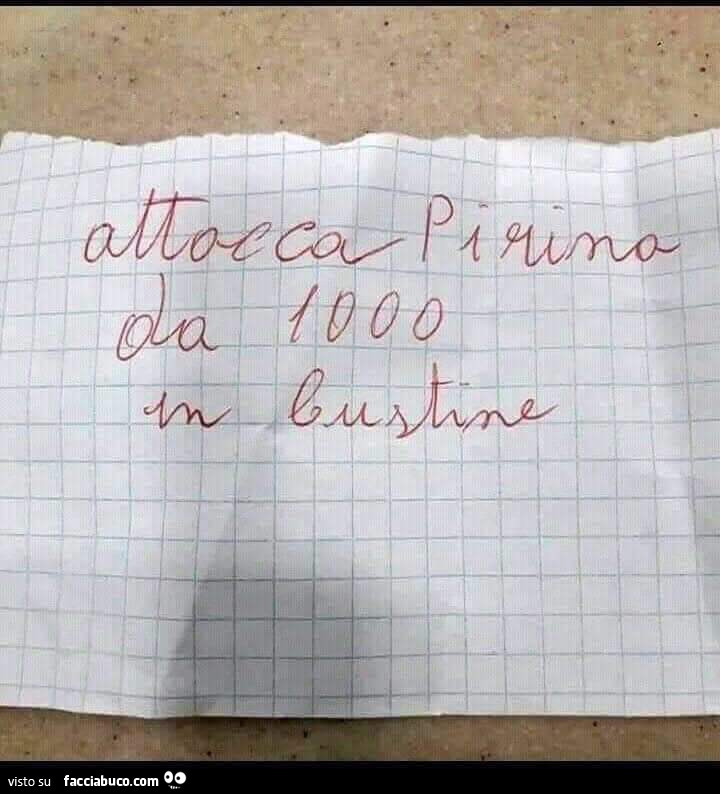 attacca Pirina
da 1000
in bustine
visto su facciabuco.com